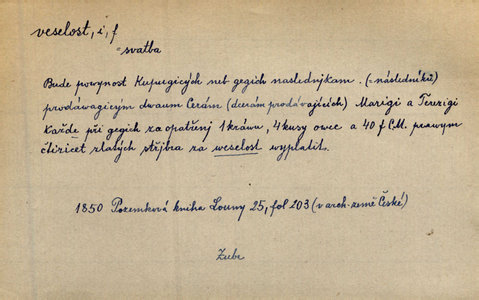 veselost, i, f
= svatba
Bude powynost Kupugicých neb gegich naslednjkam. (= následníků)
prodáwagicým dwaum Cerám (dcerám prodávajících) Marigi a Terezigi
Každe při gegich zaopatřenj 1 kráwu, 4 kusy owec a 40 f C.M. prawym
čtiricet zlatých střjbra za weselost wyplatit.
1850 Pozemková kniha Louny 25, fol 203 (v arch. země České)
Zube